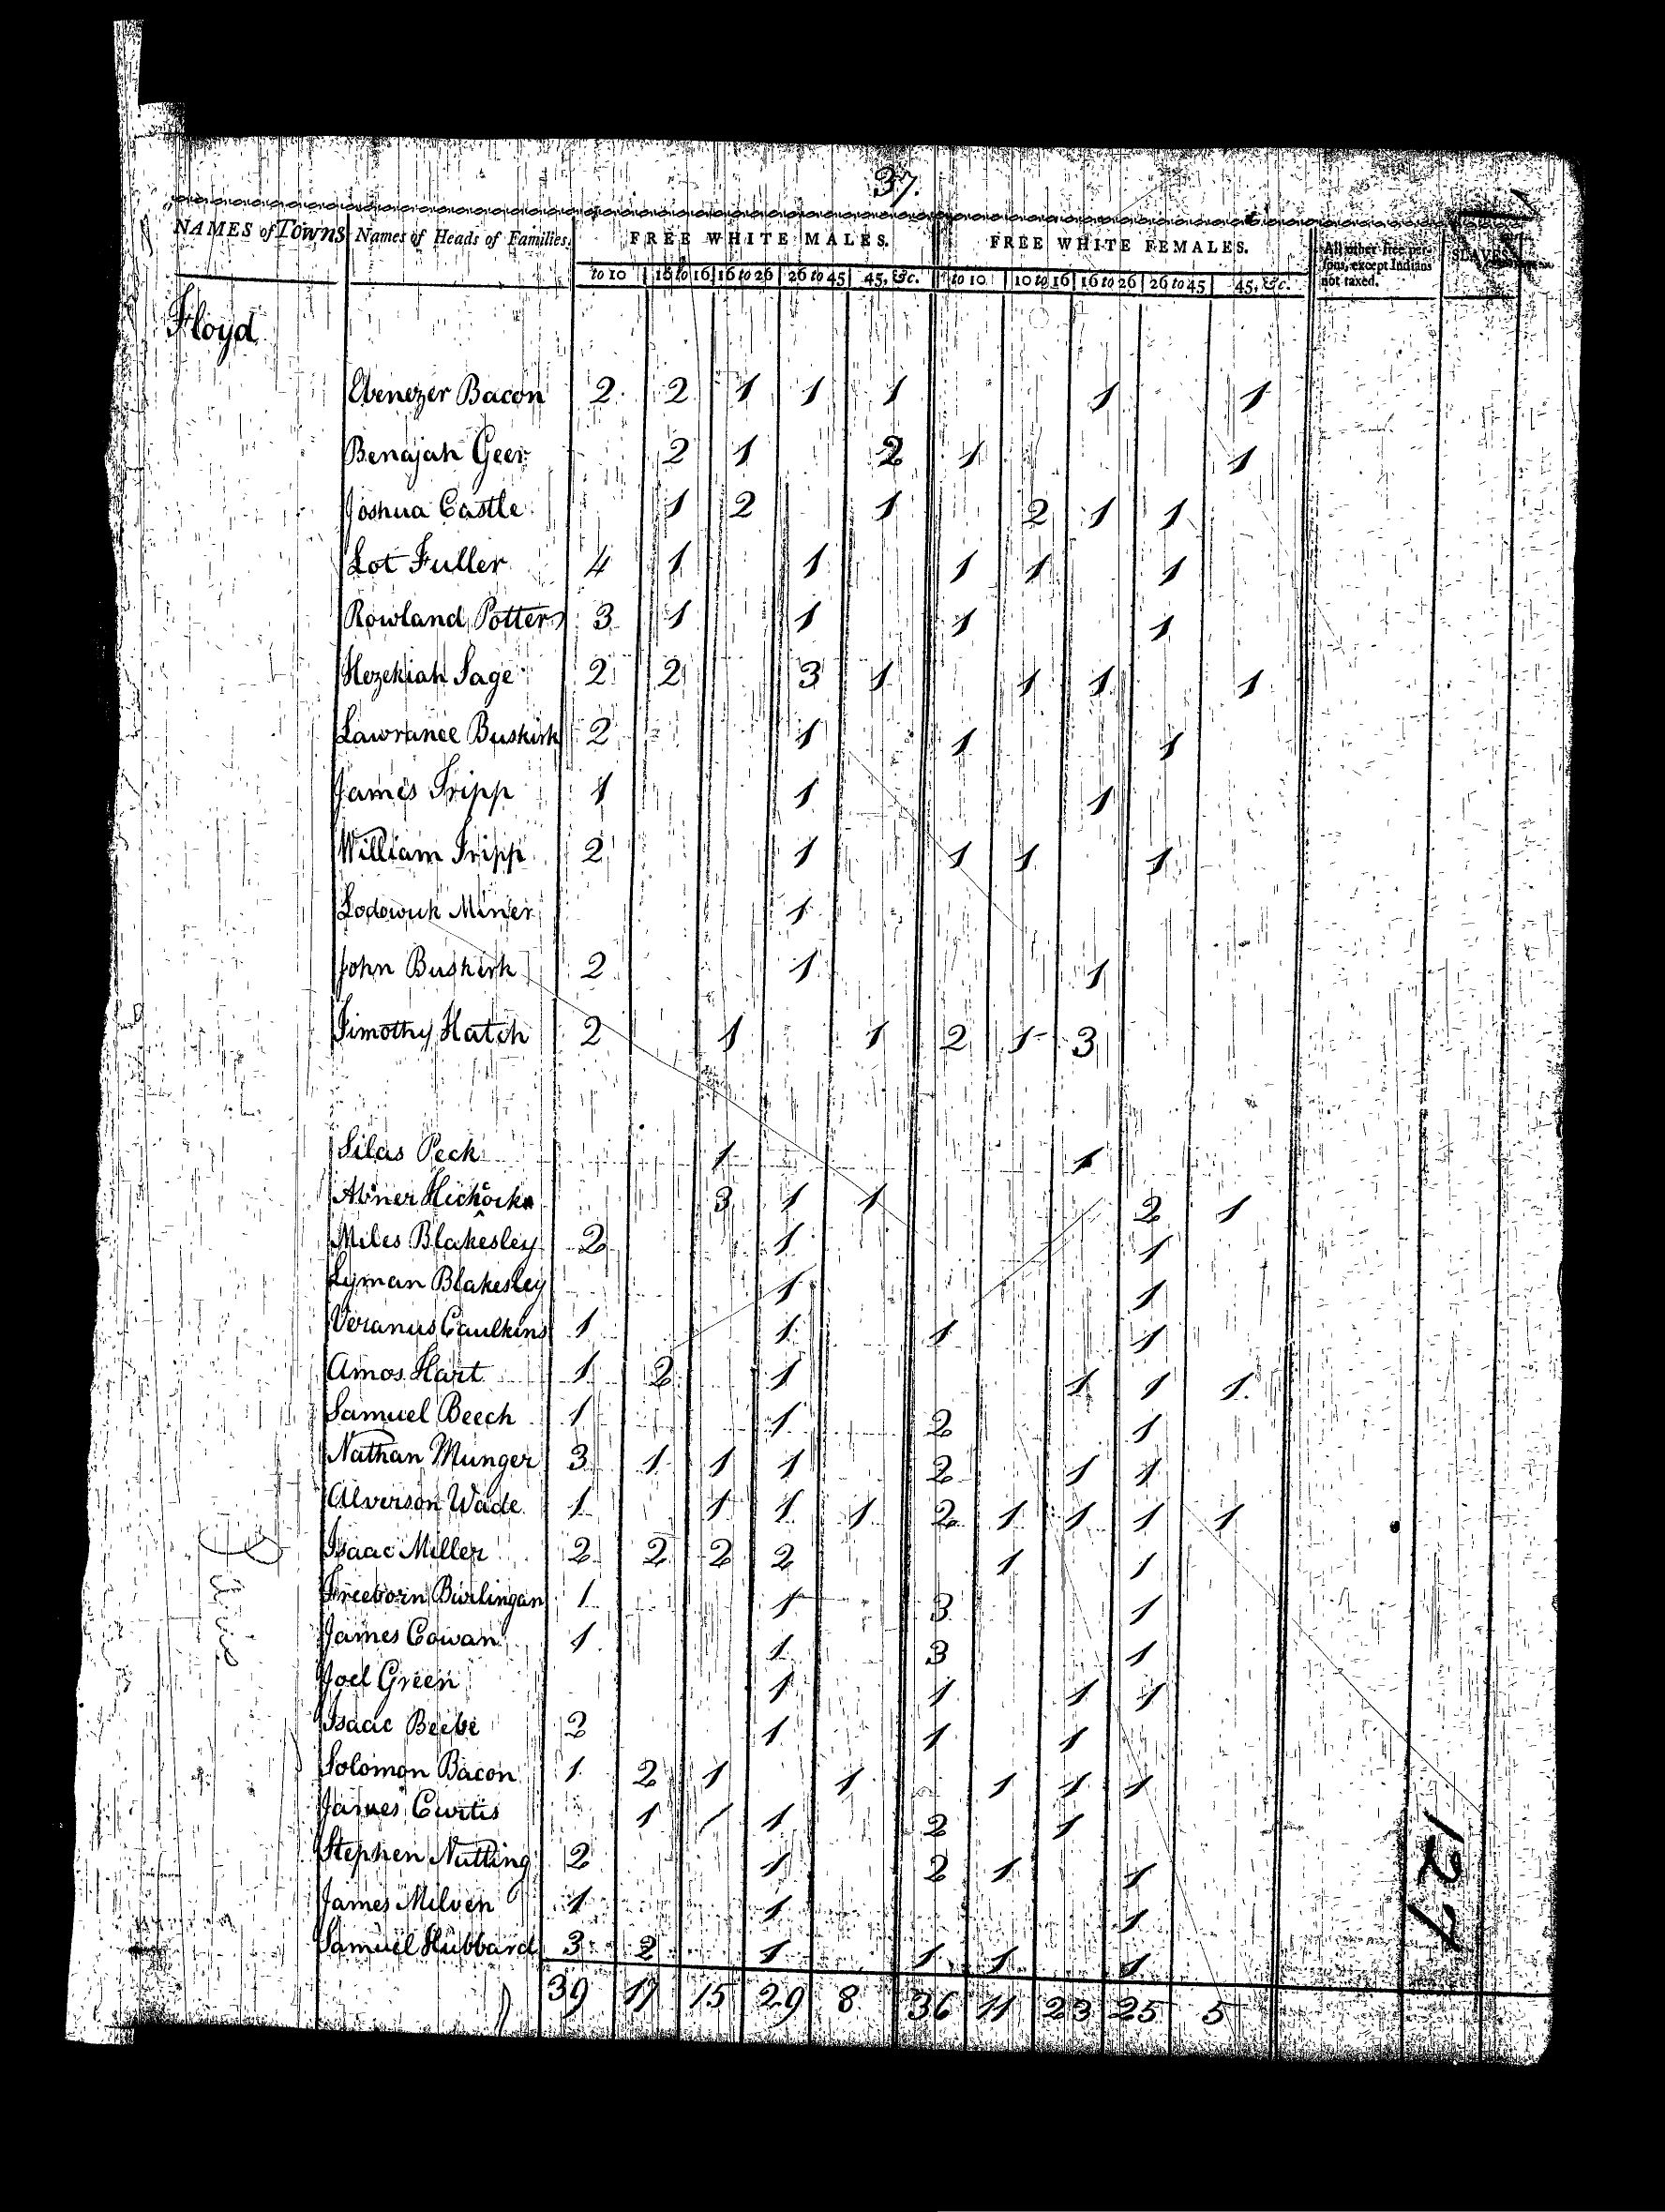 37.
NAMES of Towns Names of Heads of Families. FREE WHITE MALES. FREE WHITE FEMALES. All other free persons, except Indians not taxed. SLAVES
to 10 10 to 16 16 to 26 26 to 45 45, &c. to 10 10 to 16 16 to 26 26 to 45 45, &c.
Floyd
Ebenezer Bacon 2 2 1 1 1 1 1
Benajah Geer 2 1 2 1 1
Joshua Castle 1 2 1 2 1 1
Lot Fuller 4 1 1 1 1 1
Rowland Potter 3 1 1 1 1
Hezekiah Sage 2 2 3 1 1 1 1
Lawrance Buskirk 2 1 1 1
James Tripp 1 1 1
William Tripp 2 1 1 1 1
Lodowick Miner 1
John Buskirk 2 1 1
Timothy Hatch 2 1 1 2 1 3
Silas Peck 1 1
Abner Hichock 3 1 1 2 1
Miles Blakesley 2 1 1
Lyman Blakesley 1 1
Veranus Caulkins 1 1 1 1
Amos Hart 1 2 1 1 1 1
Samuel Beech 1 1 2 1
Nathan Munger 3 1 1 1 2 1 1
Alverson Wade 1 1 1 1 2 1 1 1 1
Isaac Miller 2 2 2 2 1 1
Freeborn Burlingan 1 1 3 1
James Cowan 1 1 3 1
Joel Green 1 1 1 1
Isaac Beebe 2 1 1 1
Solomon Bacon 1 2 1 1 1 1 1
James Curtis 1 1 1 2 1
Stephen Nutting 2 1 2 1 1
James Milven 1 1 1
Samuel Hubbard 3 2 1 1 1 1
39 17 15 29 8 36 11 23 25 5
127